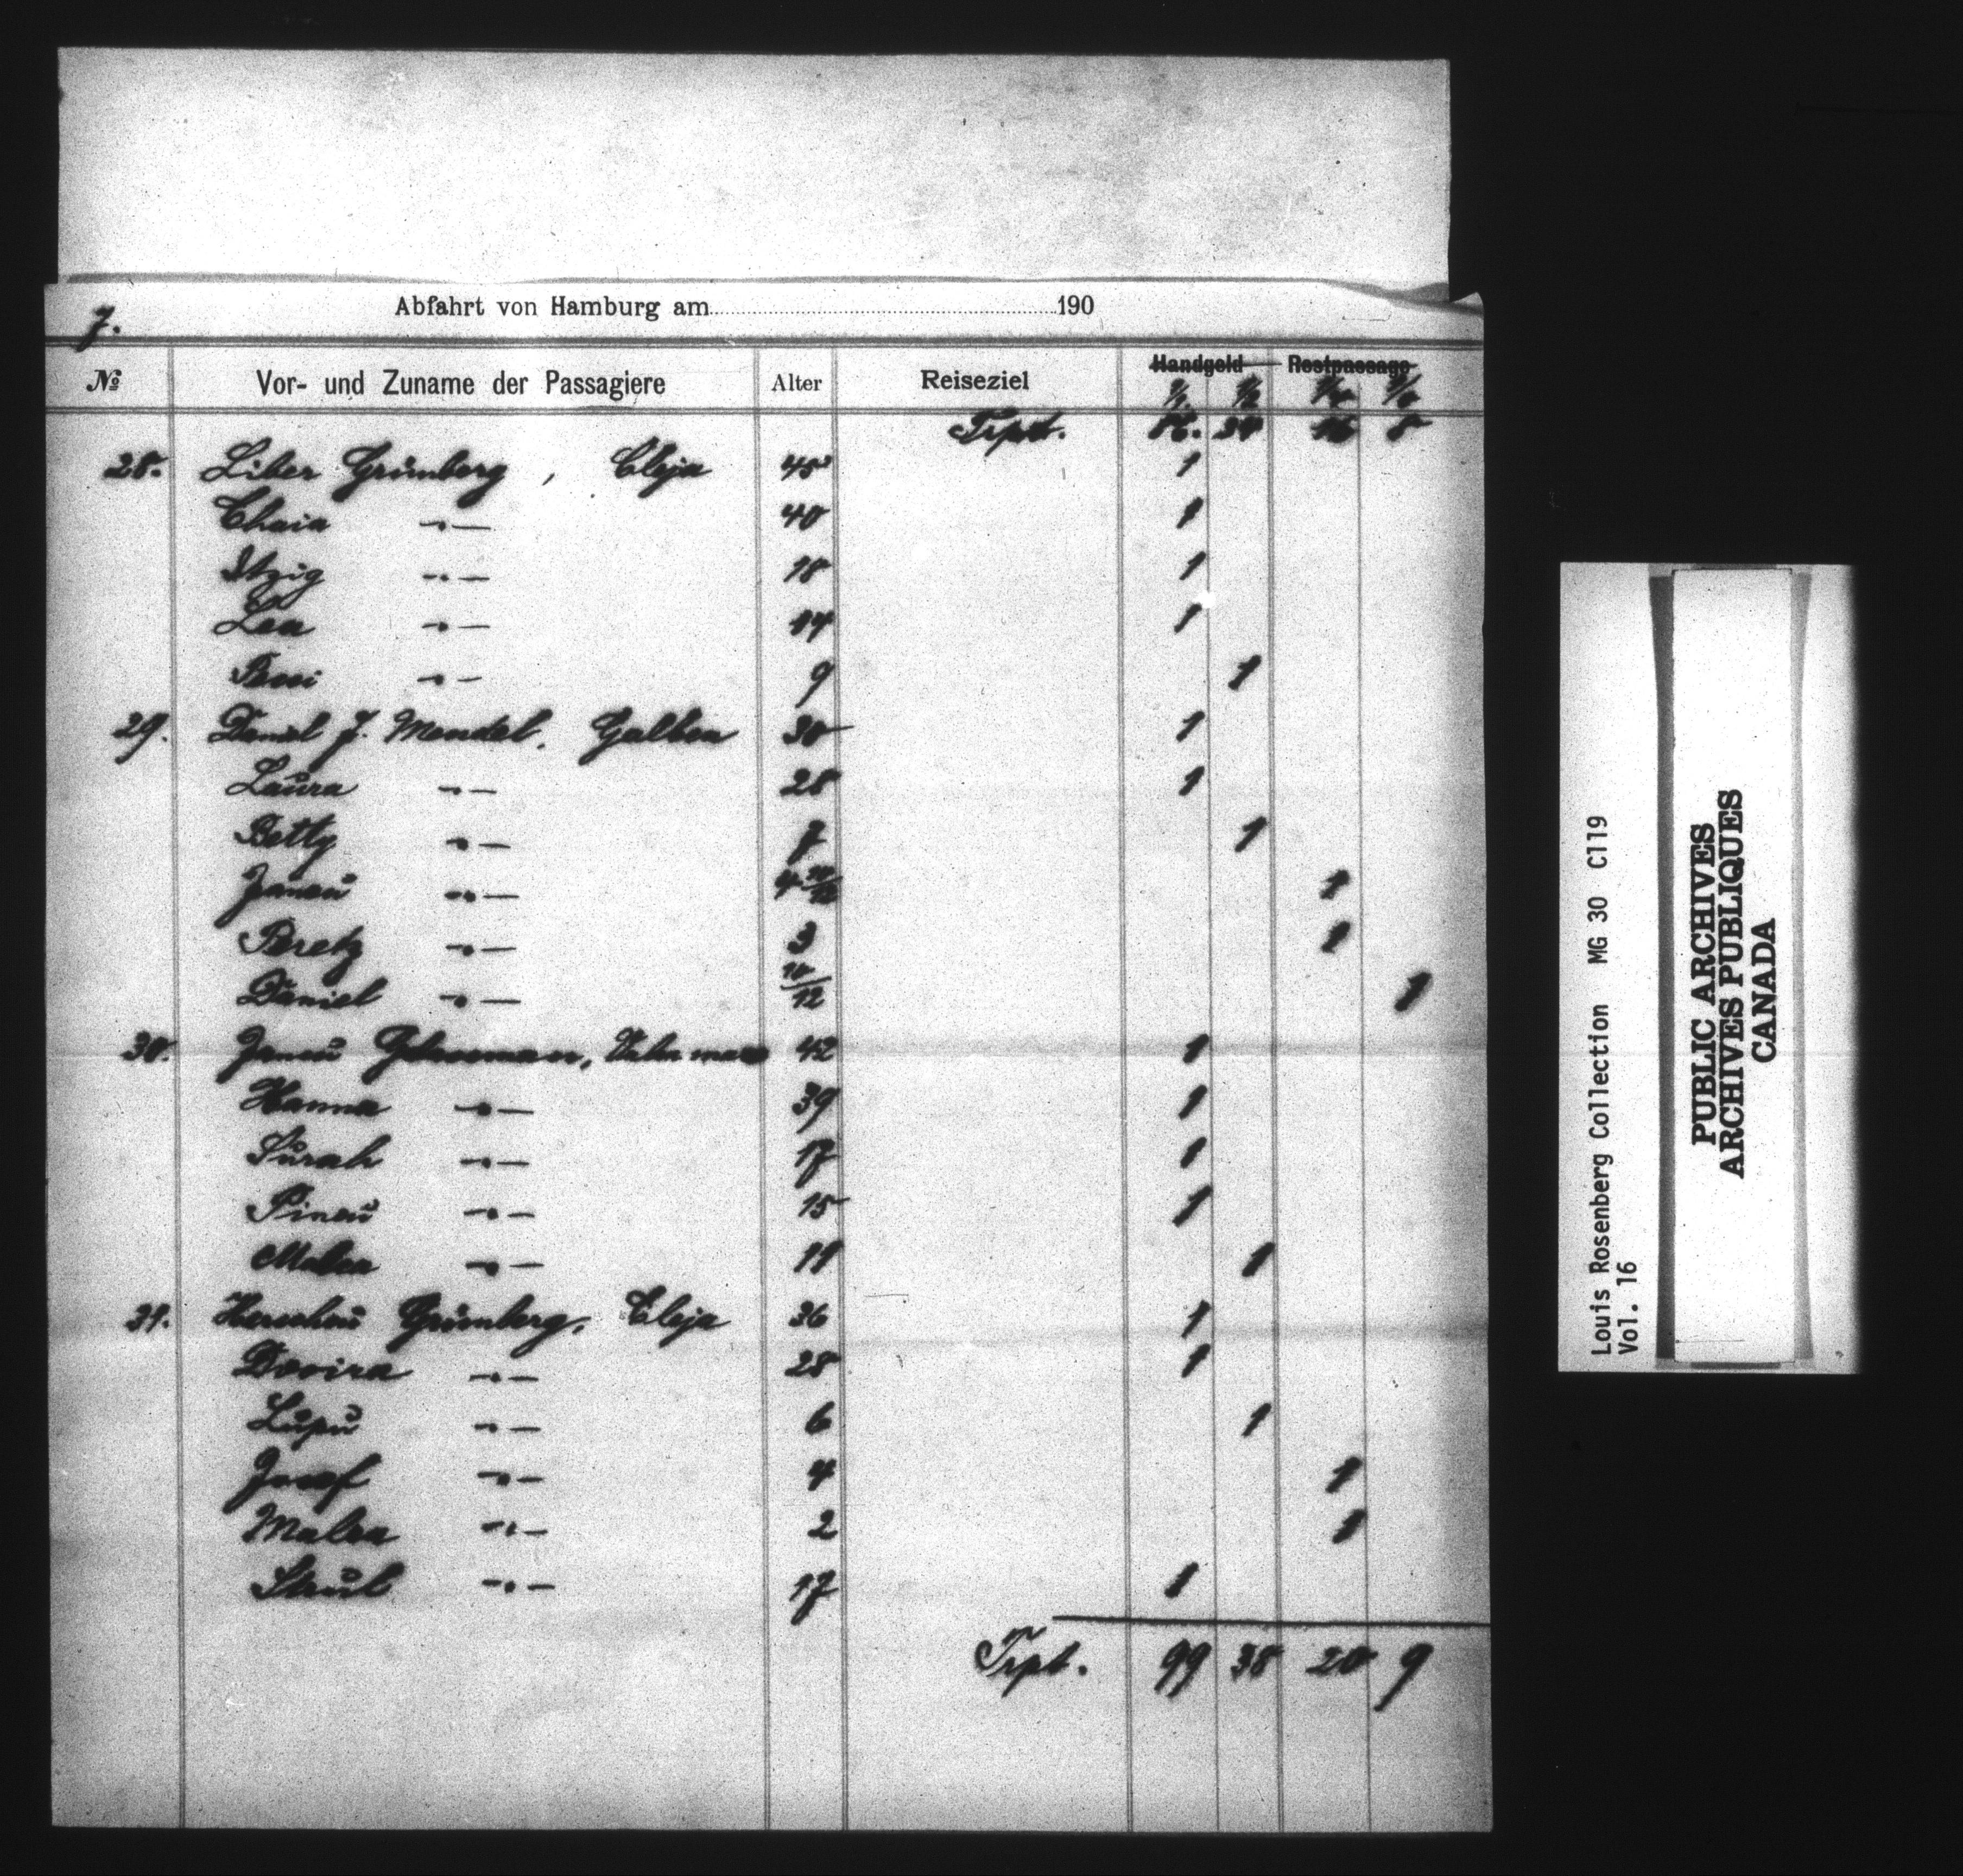 7.
Abfahrt von Hamburg am 190
№ Vor- und Zuname der Passagiere Alter Reiseziel Handgeld Restpassage
1/1 1/2
Trpt. 86. 34 16 8
28. Liber Grünberg, Cleja 45 1
Chaia -"- 40 1
Itzig -"- 18 1
Lea -"- 14 1
-"- 9 1
29. Daniel J. Mendel, Galben 30 1
Laura -"- 28 1
Betty -"- 7 1
Jancu -"- 4 10/12 1
Peretz -"- 3 1
Daniel -"- 10/12 1
30. Jancu 42 1
Hanna -"- 39 1
Surah -"- 17 1
Pincu -"- 15 1
Malca -"- 11 1
31. Herschcu Grünberg, Cleja 36 1
Dvoira -"- 28 1
Lupu -"- 6 1
Josef -"- 4 1
Malca -"- 2 1
Strul -"- 17 1
Trpt. 99 38 20 9
Louis Rosenberg Collection MG 30 C119
Vol. 16
PUBLIC ARCHIVES
ARCHIVES PUBLIQUES
CANADA